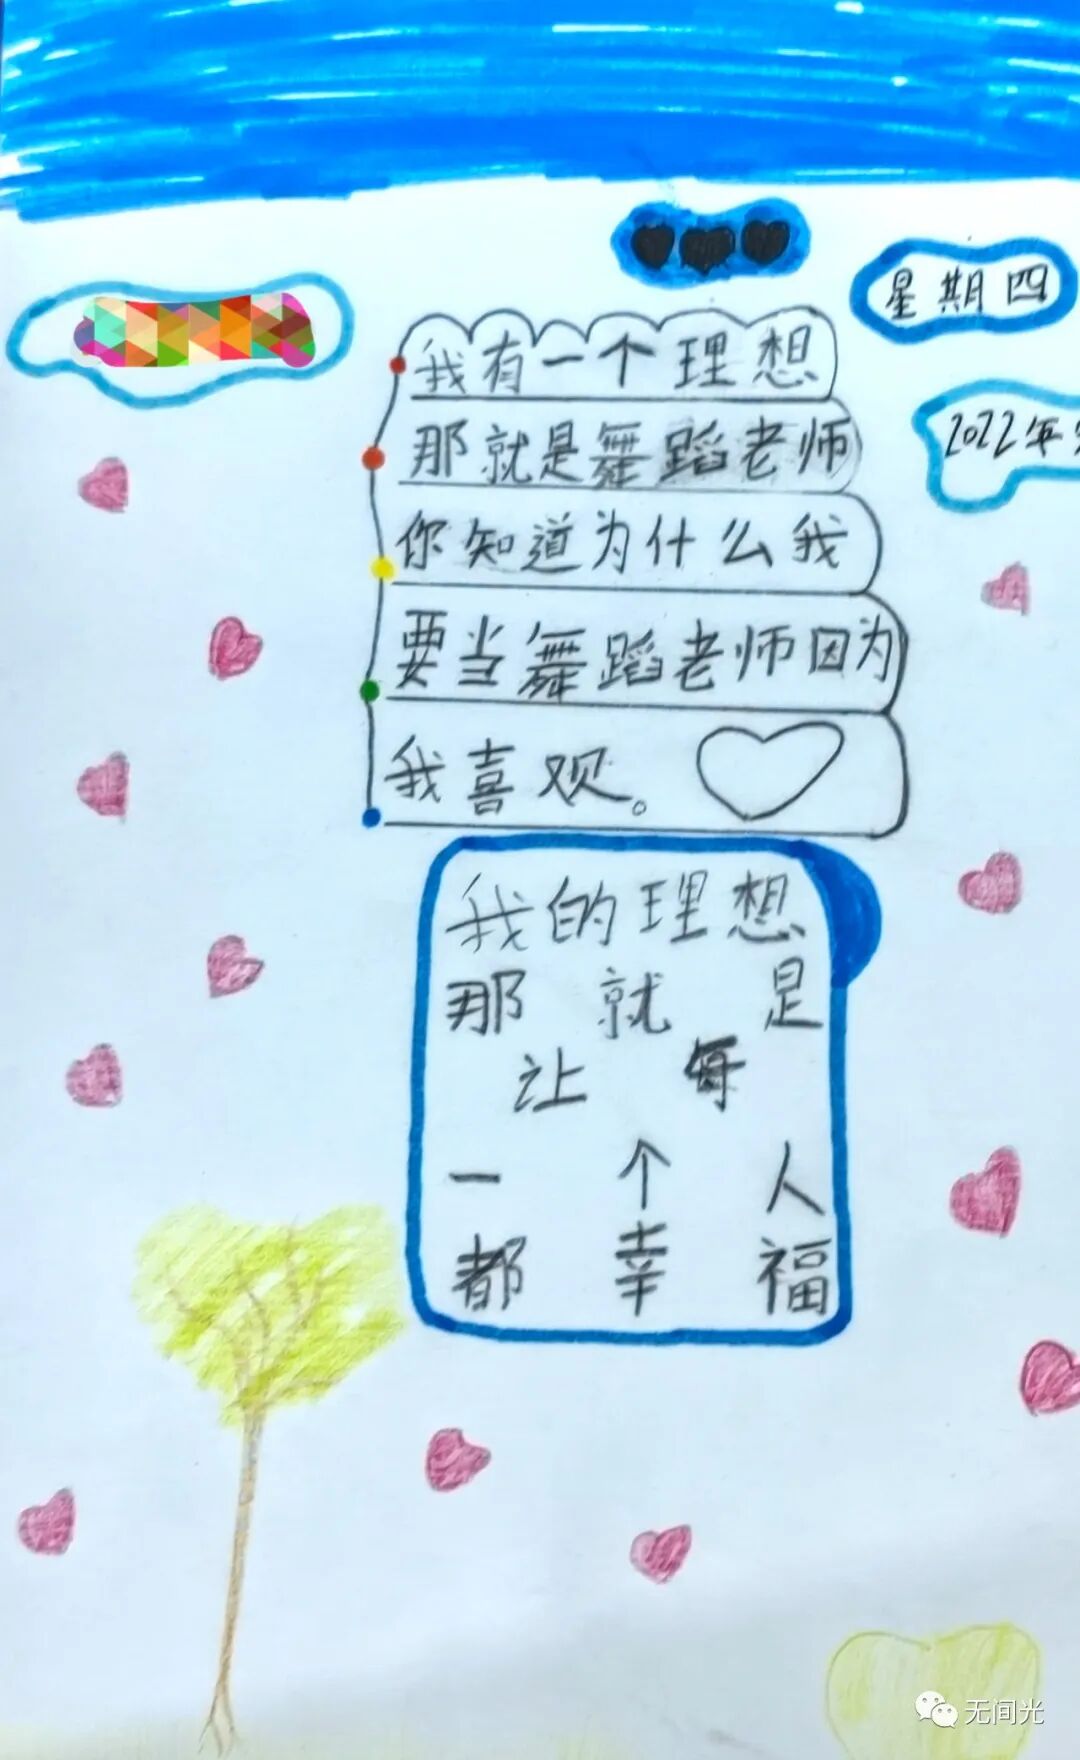 星期四
2022年
我有一个理想
那就是舞蹈老师
你知道为什么我
要当舞蹈老师因为
我喜观。
我的理想
那就是
让每
一个人
都幸福
无间光